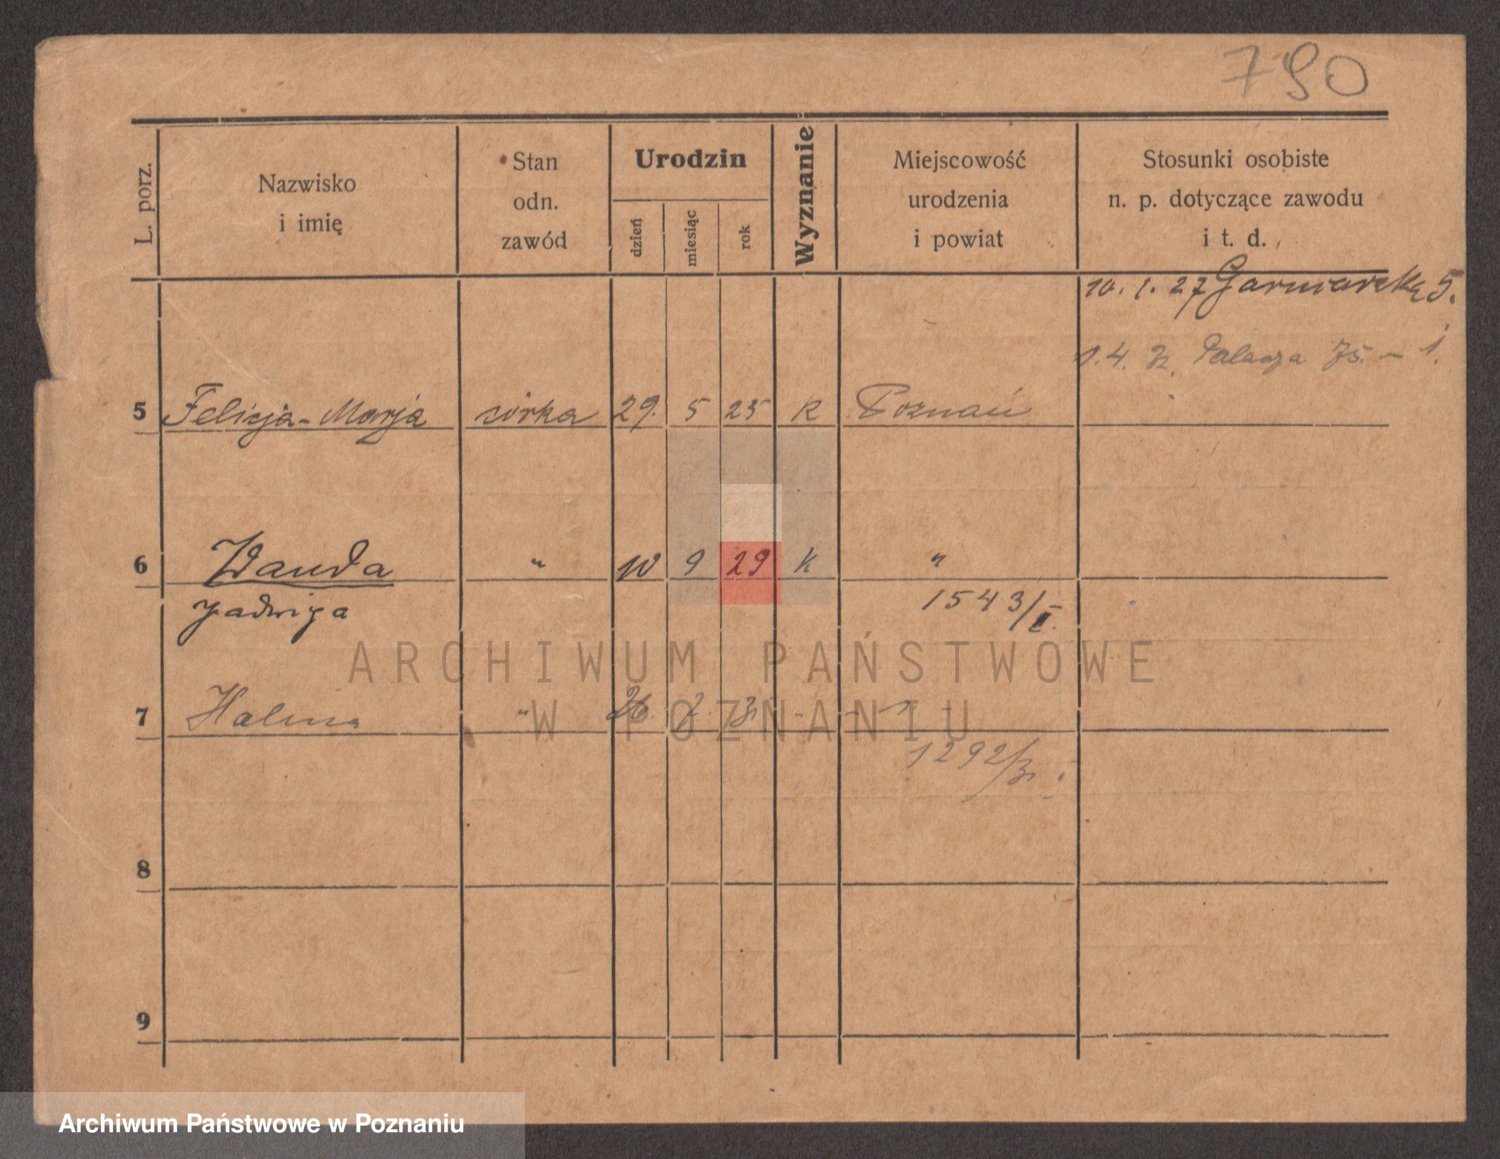 790
L. porz.
Nazwisko
i imię
Stan
odn.
zawód
Urodzin
dzień
miesiąc
rok
Wyznanie
Miejscowość
urodzenia
i powiat
Stosunki osobiste
n. p. dotyczące zawodu
i t. d.
10. 1. 27 Garncarska 5.
1.4. Palacza 75. 1.
5 Felicja-Marja córka 29. 5 25 k Poznań
6 Wanda " 10 9 29 k "
Jadwiga 1543/I.
7 Halina " 26. 2
1292/31.
8
9
ARCHIWUM PAŃSTWOWE
W POZNANIU
Archiwum Państwowe w Poznaniu